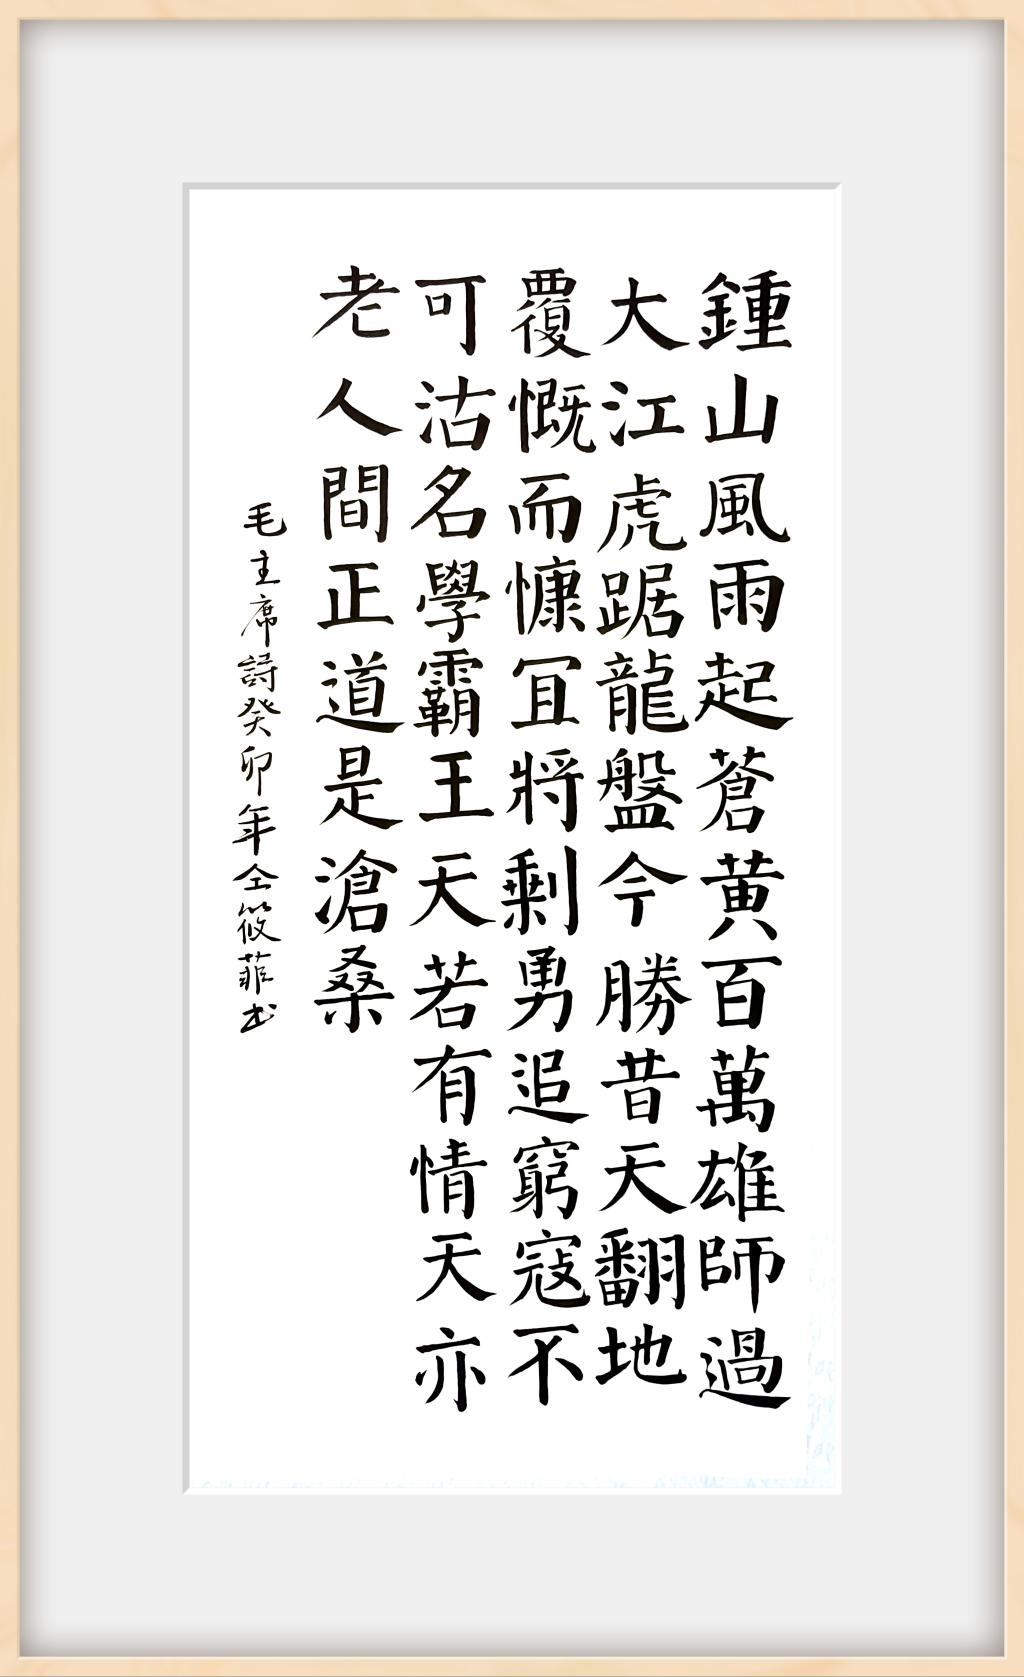 鍾山風雨起蒼黃百萬雄師過
大江虎踞龍盤今勝昔天翻地
覆慨而慷冝將剩勇追窮寇不
可沽名學霸王天若有情天亦
老人間正道是滄桑
毛主席詩癸卯年仝筱菲书